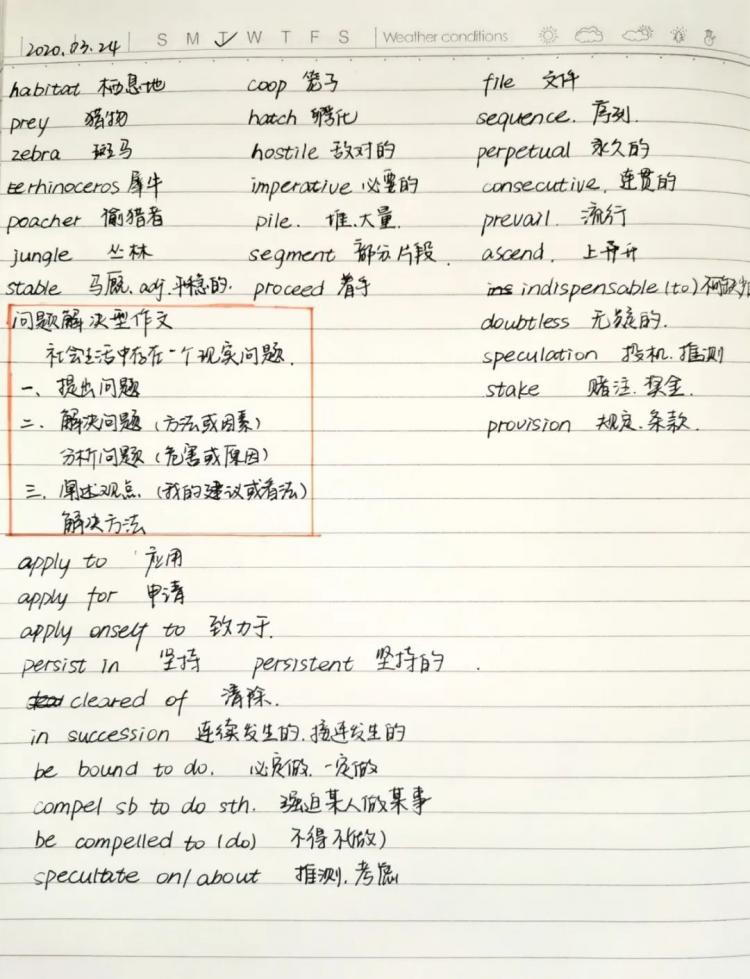 2020.03.24 S M T W T F S Weather conditions
habitat 栖息地
prey 猎物
zebra 斑马
rhinoceros 犀牛
poacher 偷猎者
jungle 丛林
stable 马厩、adj.平稳的.
coop 笼子
hatch 孵化
hostile 敌对的
imperative 必要的
pile. 堆、大量.
segment 部分、片段.
proceed 着手
file 文件
sequence. 序列.
perpetual 永久的
consecutive. 连贯的
prevail. 流行
ascend. 上升
indispensable (to) 不可缺少
doubtless 无疑的.
speculation 投机.推测
stake 赌注.奖金.
provision 规定.条款.
问题解决型作文
社会生活中存在一个现实问题.
一、提出问题
二、解决问题（方法或因素）
分析问题（危害或原因）
三、阐述观点.（我的建议或看法）
解决方法
apply to 应用
apply for 申请
apply onself to 致力于.
persist in 坚持 persistent 坚持的.
cleared of 清除.
in succession 连续发生的.接连发生的
be bound to do. 必定做.一定做
compel sb to do sth. 强迫某人做某事
be compelled to (do) 不得不(做)
specultate on/about 推测.考虑